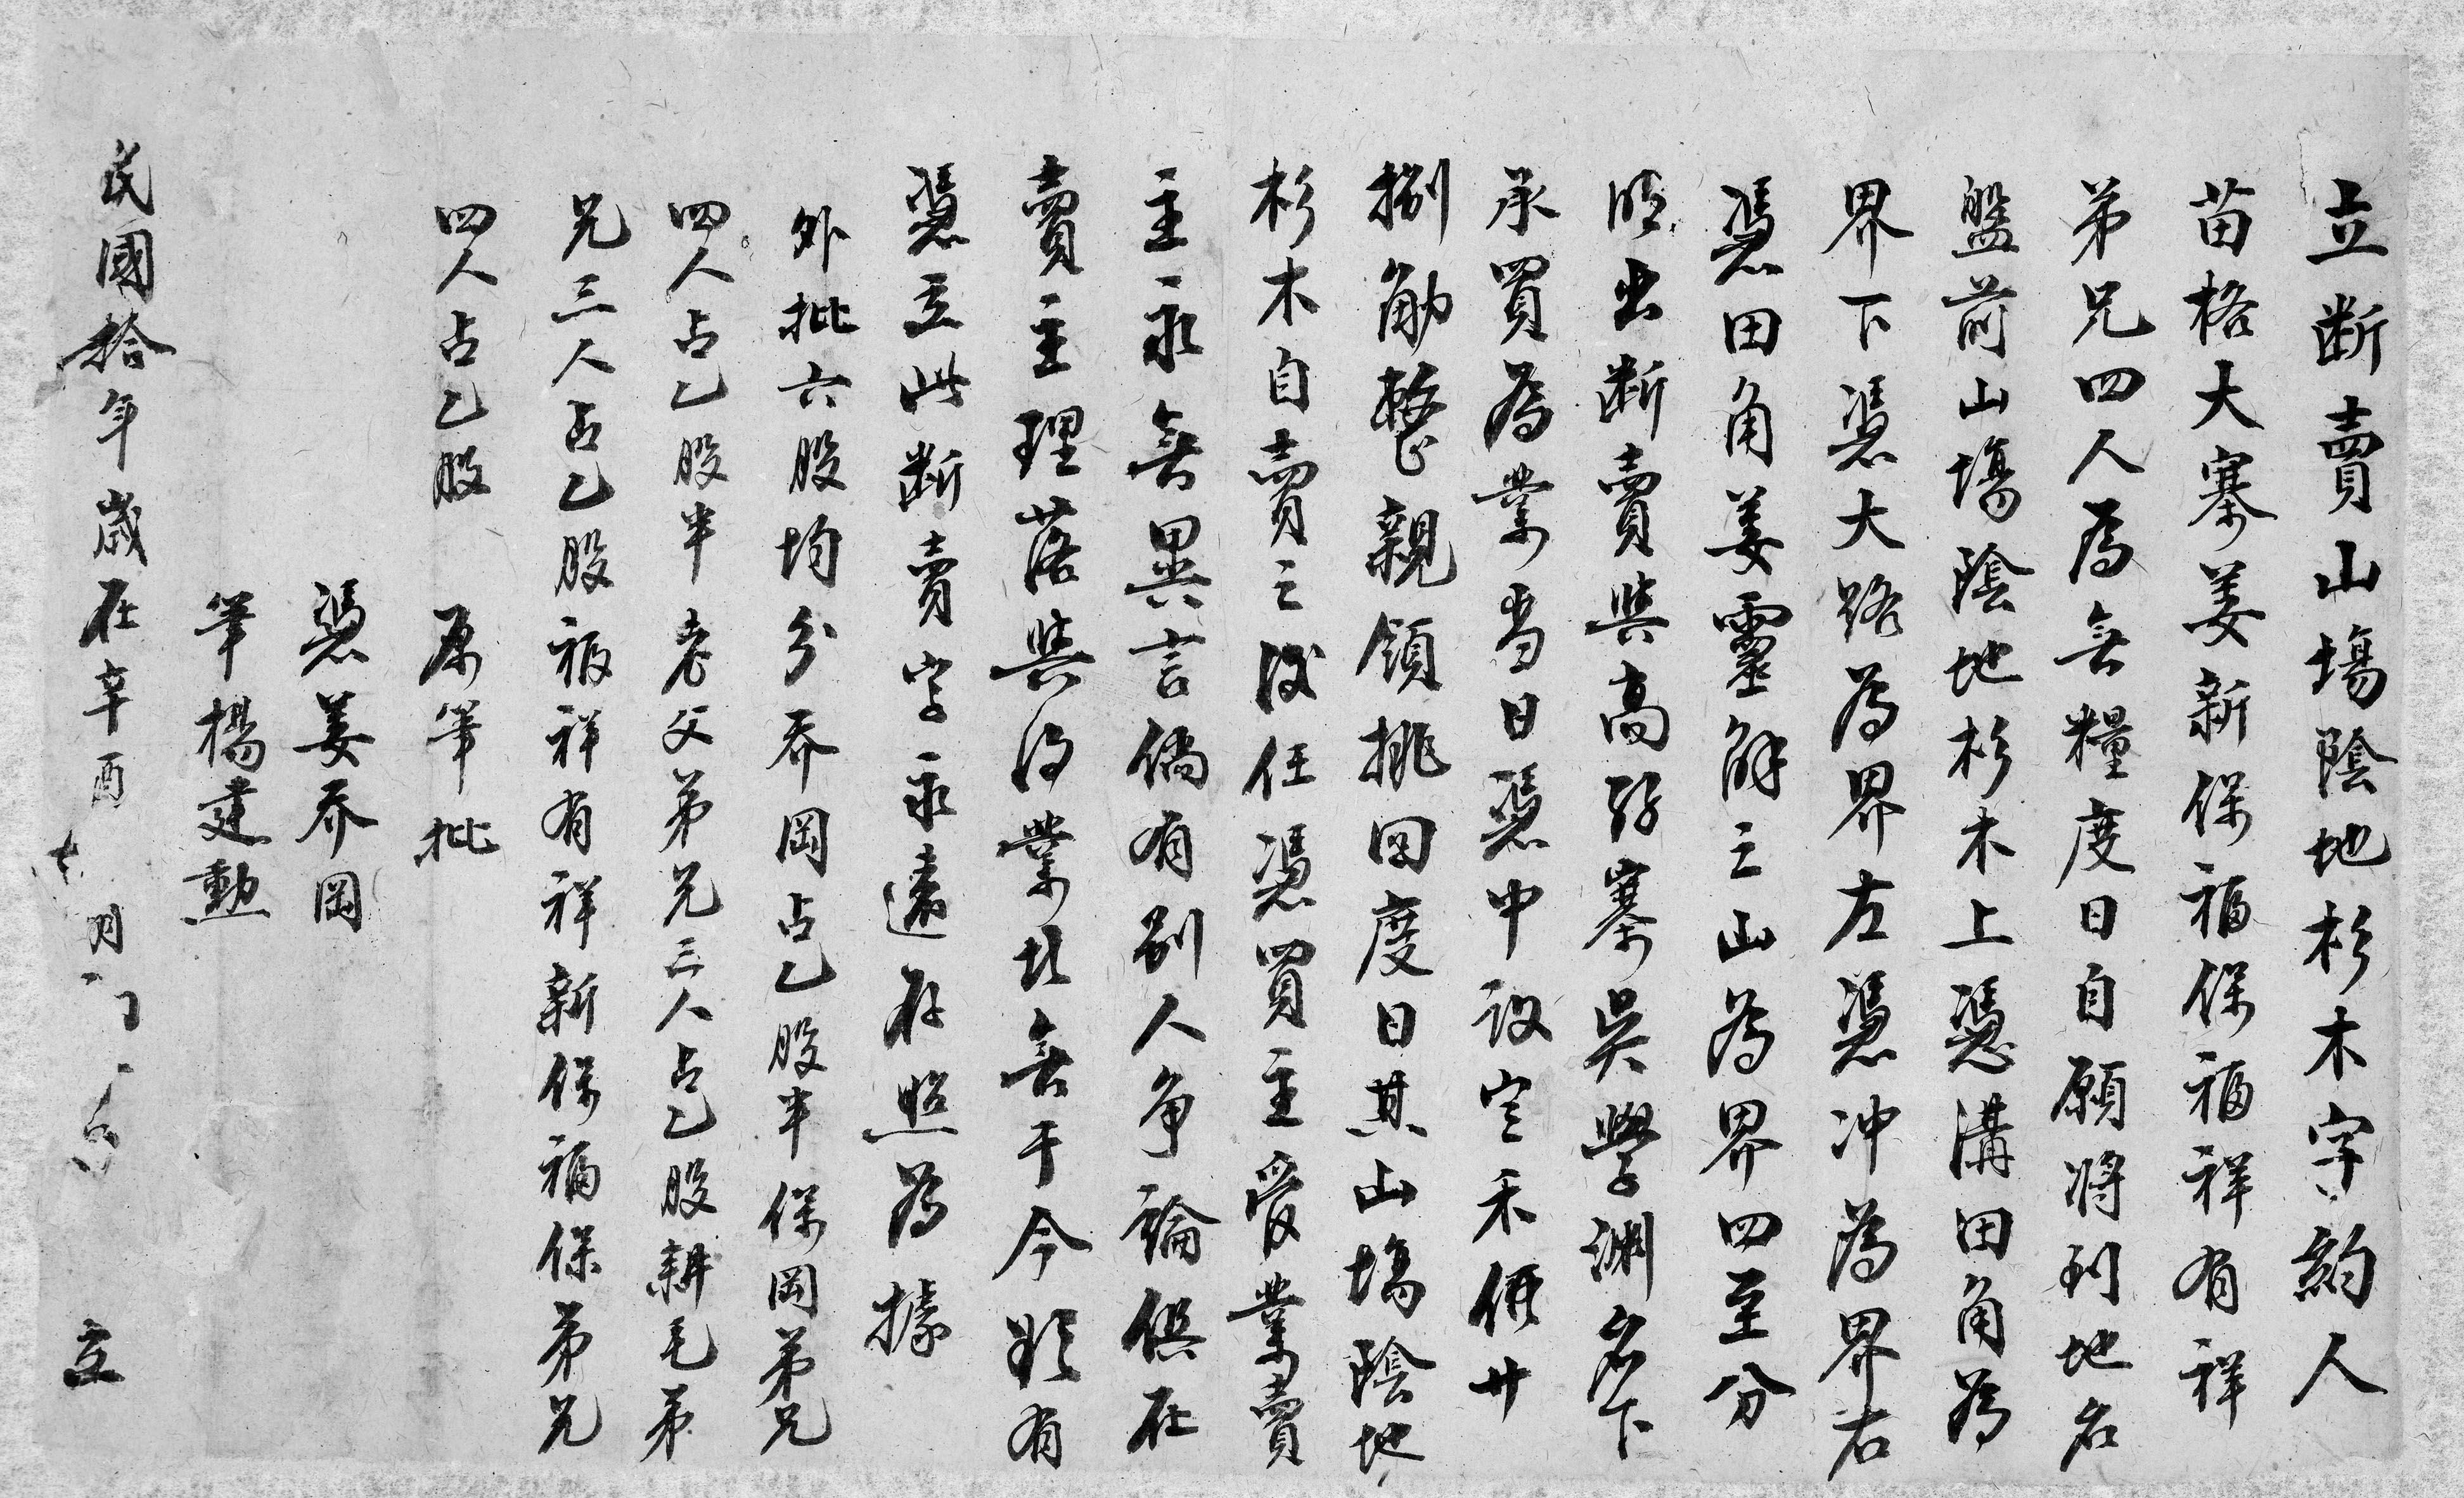 立断賣山塲陰地杉木字約人
苗格大寨姜新保福保福祥有祥
弟兄四人為無糧度日自願將到地名
盤前山塲陰地杉木上憑溝田角為
界下憑大路為界左憑冲為界右
憑田角姜靈觧之山為界四至分
明出断賣與高 寨吳學渊名下
承買為業當日憑中議定禾 廿
捌觔整親領挑回度日其山塲陰地
杉木自賣之後任憑買主受業賣
主永無異言倘有别人争論俱在
賣主理落與 業 無干今 有
憑立此断賣字永遠存照為據
外批六股均分乔岡占乙股半保岡弟兄
四人占乙股半老父弟兄三人占乙股耕毛弟
兄三人占乙股福祥有祥新保福保弟兄
四人占乙股 原筆批
憑姜乔岡
筆楊建勲
民國拾年歲在辛酉 月 立